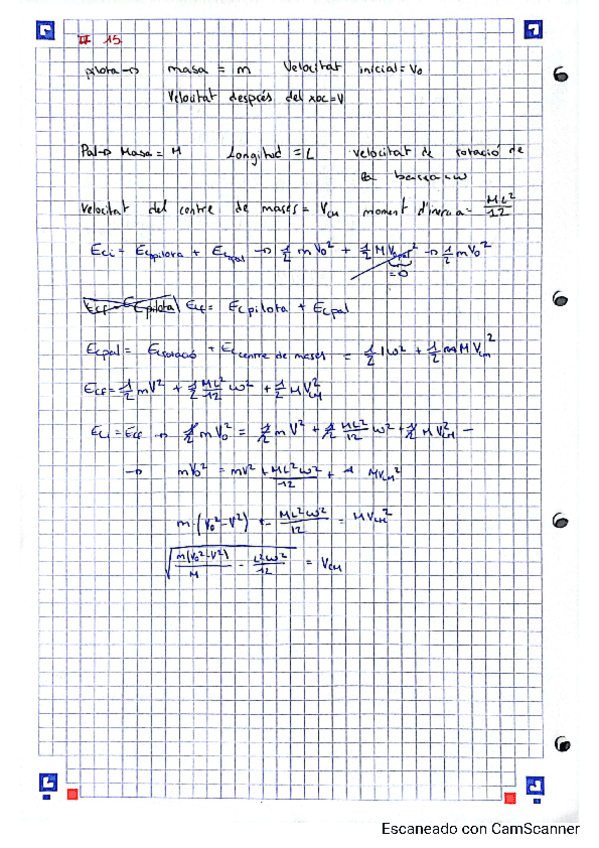 # 15
pilota → masa = m Velocitat inicial = V₀
Velocitat després del xoc = V
Pal → Masa = M Longitud = L velocitat de rotació de
la barra = ω
Velocitat del centre de mases = V_CM moment d'inercia = ML²/12
Eci = Ecpilota + Ecpal → 1/2 m V₀² + 1/2 M Vpal² → 1/2 m V₀²
= 0
Ecf = Ecpilota Ecf = Ecpilota + Ecpal
Ecpal = Ecrotació + Eccentre de mases = 1/2 I ω² + 1/2 M V_CM²
Ecf = 1/2 m V² + 1/2 ML²/12 ω² + 1/2 M V_CM²
Eci = Ecf → 1/2 m V₀² = 1/2 m V² + 1/2 ML²/12 ω² + 1/2 M V_CM² −
→ m V₀² = m V² + ML²ω²/12 + M V_CM²
m·(V₀² − V²) − ML²ω²/12 = M V_CM²
√(m(V₀² − V²)/M − L²ω²/12) = V_CM
Escaneado con CamScanner